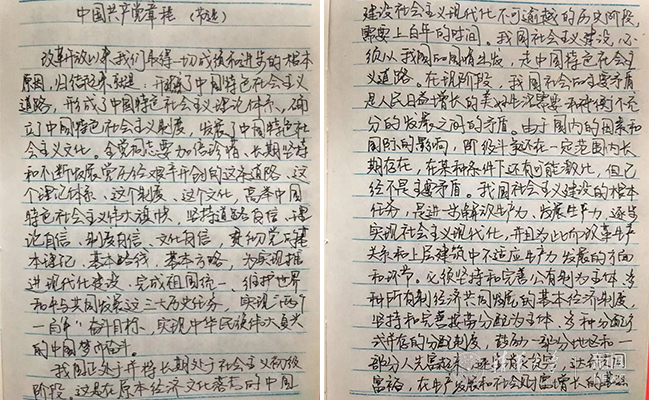 中国共产党章程（节选）
改革开放以来我们取得一切成绩和进步的根本
原因，归结起来就是：开辟了中国特色社会主义
道路，形成了中国特色社会主义理论体系，确
立了中国特色社会主义制度，发展了中国特色社
会主义文化。全党同志要倍加珍惜、长期坚持
和不断发展党历经艰辛开创的这条道路、这
个理论体系、这个制度、这个文化，高举中国
特色社会主义伟大旗帜，坚持道路自信、理
论自信、制度自信、文化自信，贯彻党的基
本理论、基本路线、基本方略，为实现推
进现代化建设、完成祖国统一、维护世界
和平与共同发展这三大历史任务，实现"两个
一百年"奋斗目标、实现中华民族伟大复兴
的中国梦而奋斗。
我国正处于并将长期处于社会主义初级
阶段。这是在原本经济文化落后的中国
建设社会主义现代化不可逾越的历史阶段，
需要上百年的时间。我国社会主义建设，必
须从我国的国情出发，走中国特色社会主
义道路。在现阶段，我国社会的主要矛盾
是人民日益增长的美好生活需要和不平衡不充
分的发展之间的矛盾。由于国内的因素和
国际的影响，阶级斗争还在一定范围内长
期存在，在某种条件下还有可能激化，但已
经不是主要矛盾。我国社会主义建设的根本
任务，是进一步解放生产力，发展生产力，逐步
实现社会主义现代化，并且为此而改革生产
关系和上层建筑中不适应生产力发展的方面
和环节。必须坚持和完善公有制为主体、多
种所有制经济共同发展的基本经济制度，
坚持和完善按劳分配为主体、多种分配方
式并存的分配制度，鼓励一部分地区和一
部分人先富起来，逐步消灭贫穷，达到共同
富裕，在生产发展和社会财富增长的基础